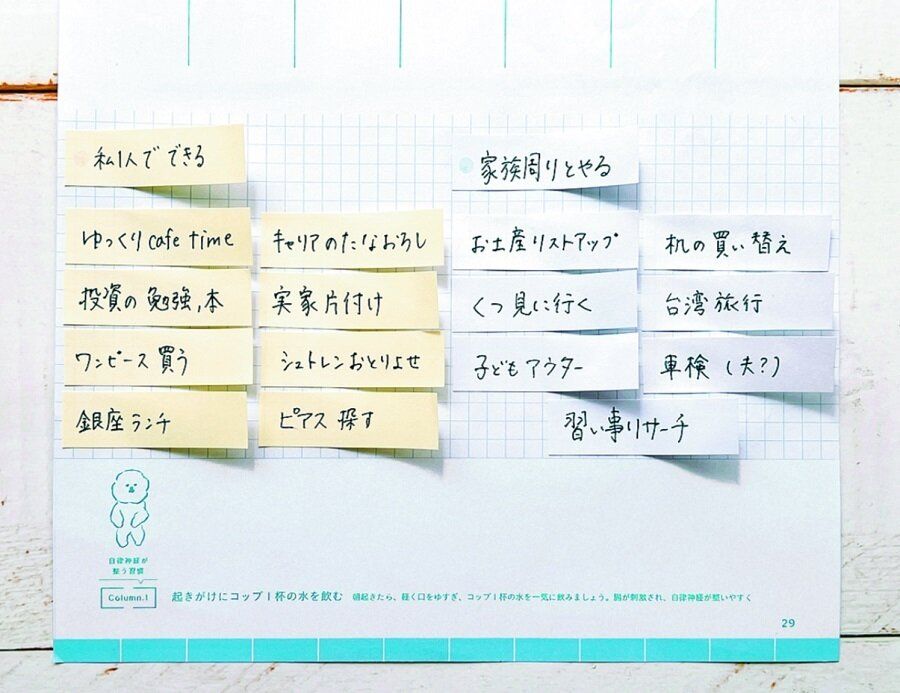 私1人でできる
ゆっくり cafe time
キャリアのたなおろし
投資の勉強,本
実家片付け
ワンピース買う
シュトレンおとりよせ
銀座ランチ
ピアス探す
家族周りとやる
お土産リストアップ
机の買い替え
くつ見に行く
台湾旅行
子どもアウター
車検(夫?)
習い事リサーチ
自律神経が
整う習慣
Column.1
起きがけにコップ1杯の水を飲む
朝起きたら、軽く口をゆすぎ、コップ1杯の水を一気に飲みましょう。腸が刺激され、自律神経が整いやすく
29